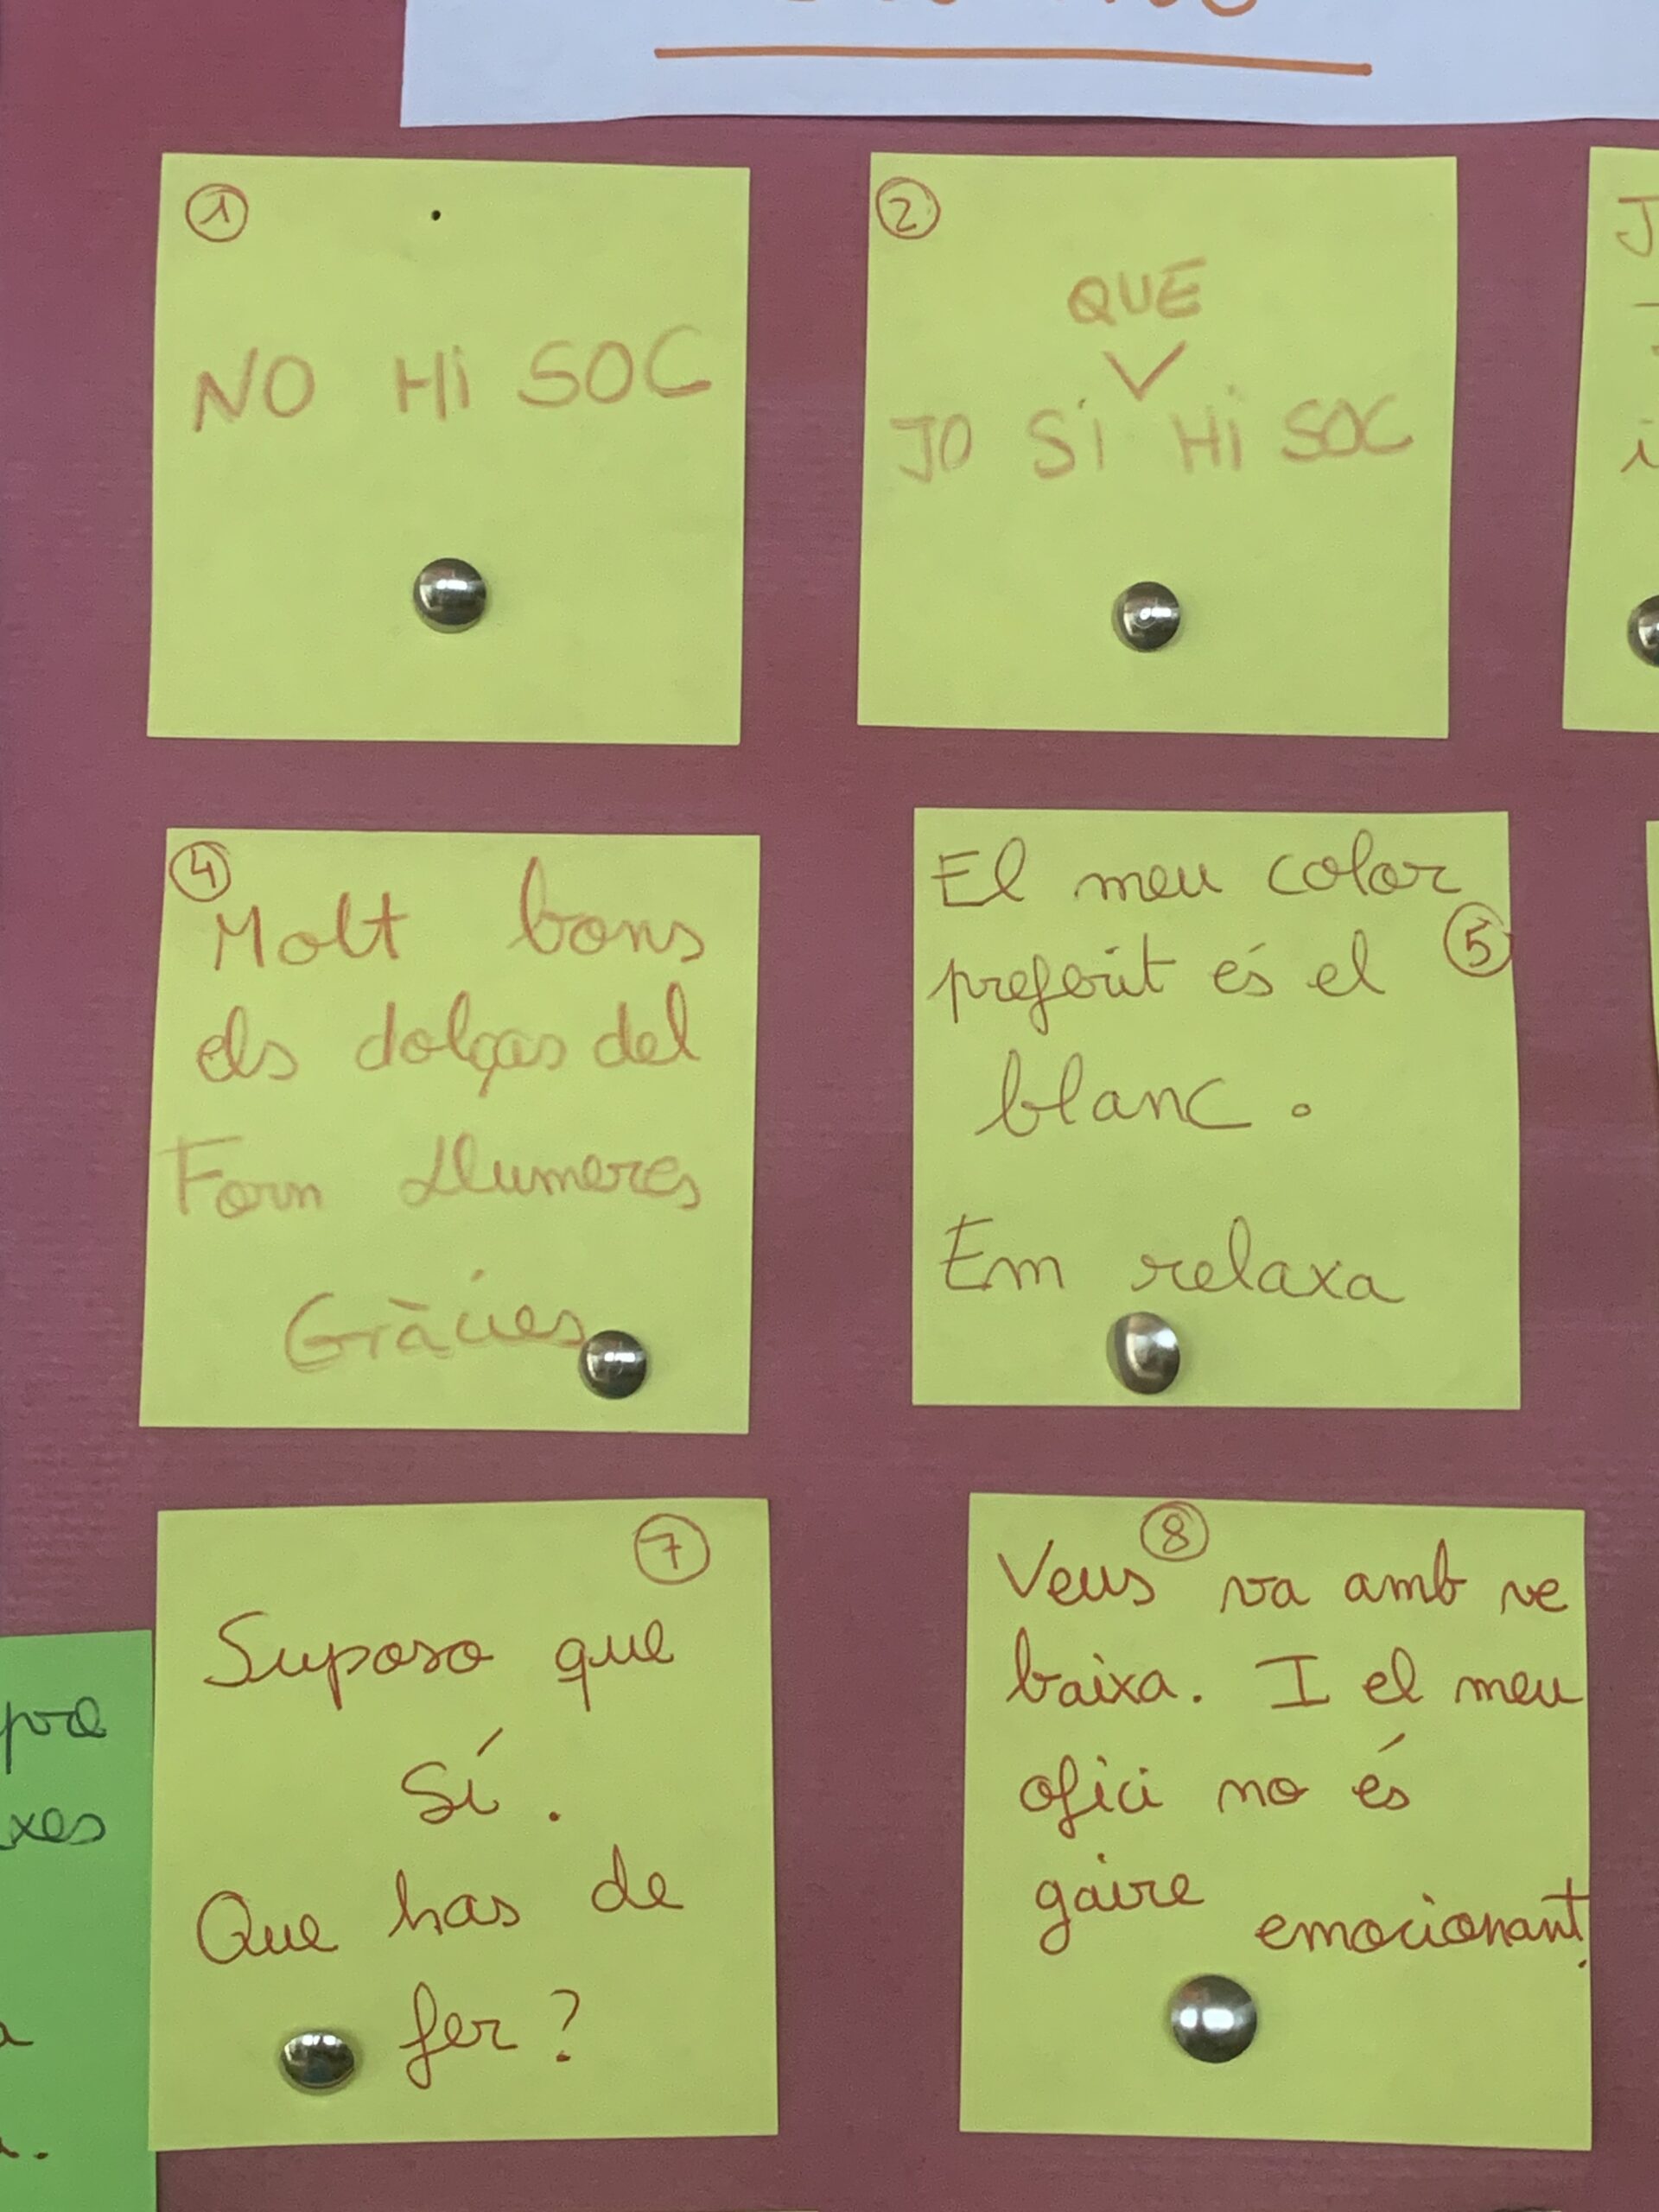 ①
NO Hi SOC
②
QUE
JO Sí Hi SOC
④
Molt bons
els dolços del
Forn Llumeres
Gràcies
El meu color
preferit és el ⑤
blanc.
Em relaxa
⑦
Suposo que
sí.
Que has de
fer?
⑧
Veus va amb ve
baixa. I el meu
ofici no és
gaire emocionant.
xes